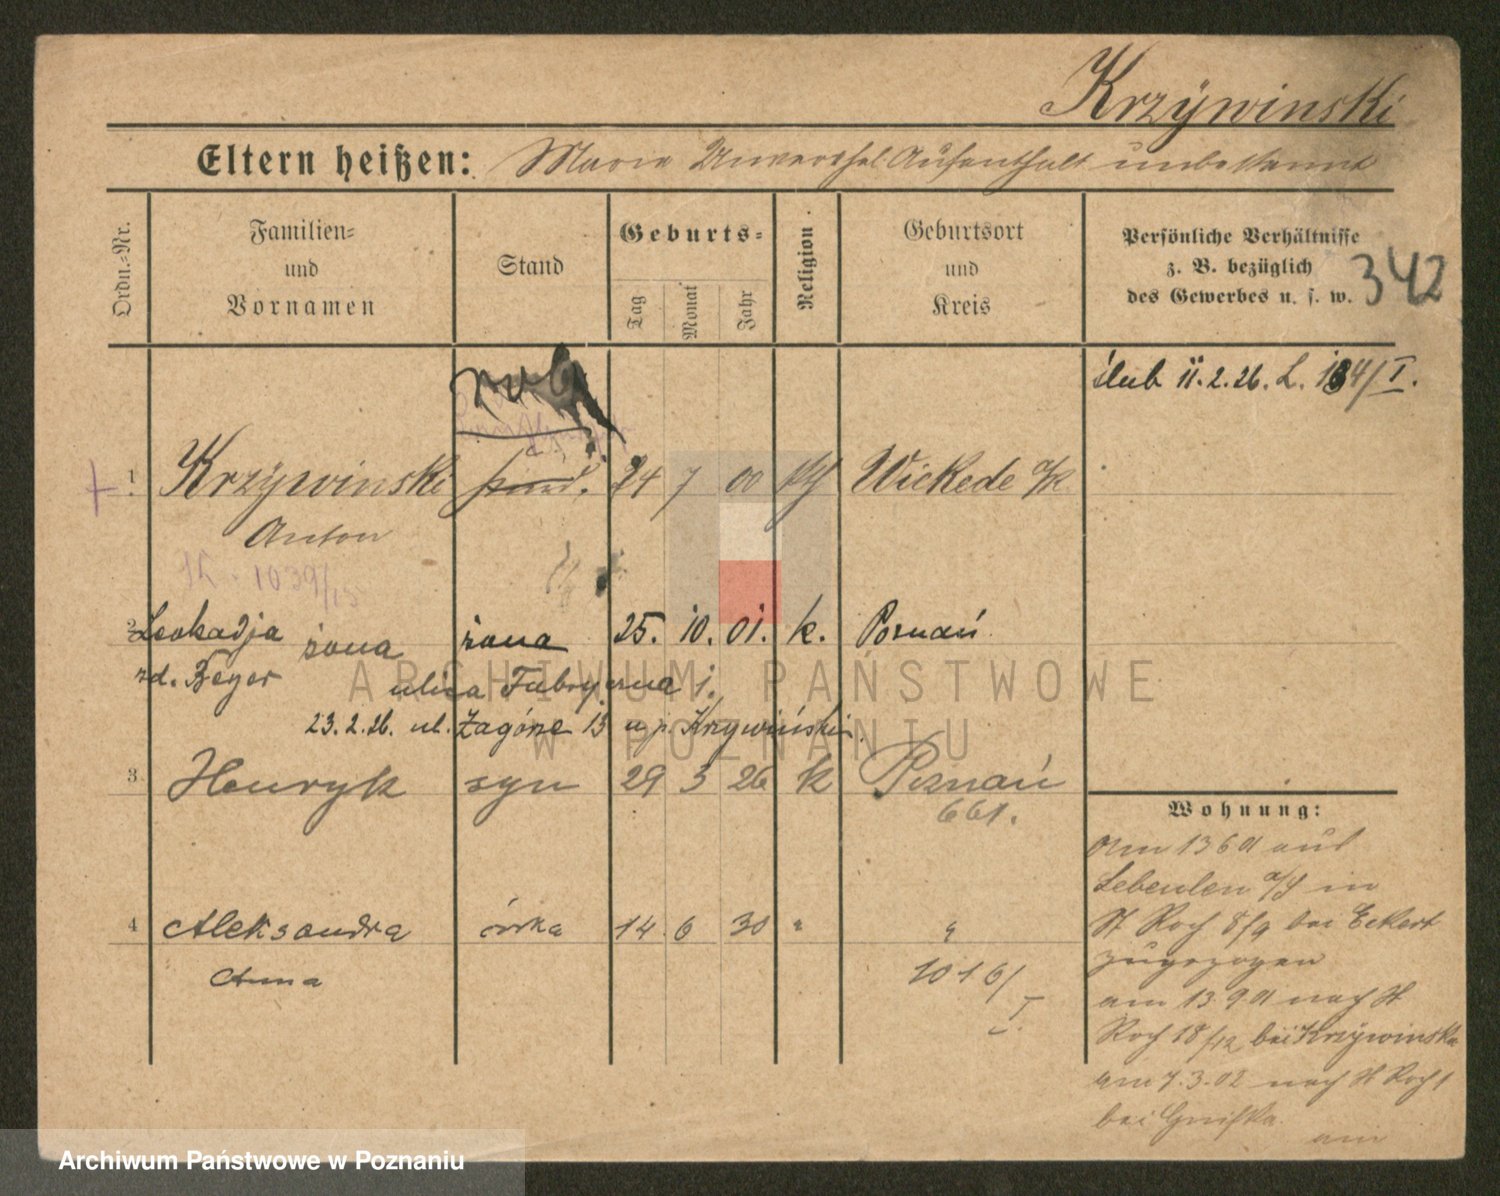 Krzÿwinski
Eltern heißen: Marie Aufenthalt unbekannt
Ordn.-Nr.
Familien- und Vornamen
Stand
Geburts-
Tag
Monat
Jahr
Religion.
Geburtsort und Kreis
Persönliche Verhältnisse
z. B. bezüglich
des Gewerbes u. s. w.
342
ślub 11.2.26. L. 184/I.
1 Krzÿwinski 24 7 00 Wickede
Anton
1039/15
2 Leokadja żona żona 25. 10. 01. k. Poznań
zd. Beyer ulica Fabryczna 1.
23.2.26. ul. Zagórze 13 u p. Krzywiński.
3. Henryk syn 29 3 26 k Poznań
661.
4 Aleksandra córka 14. 6 30 " "
Anna
1016/I.
Wohnung:
am 13 6 01 aus
in
St Roch 8/9 bei Eckert
zugezogen
am 13.9 01 nach St
Roch 18/12 bei Krzÿwinska
am 7.3.02 nach St Roch 1
bei
am
ARCHIWUM PAŃSTWOWE
W POZNANIU
Archiwum Państwowe w Poznaniu